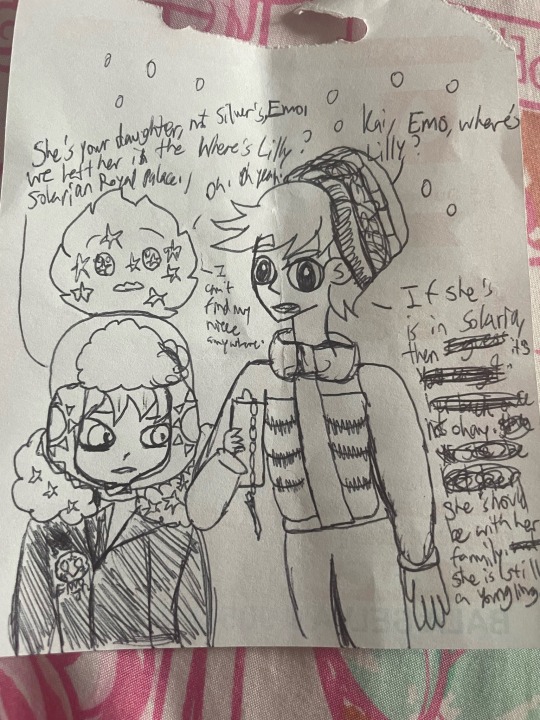 She's your daughter, not Silver's, Emo,
we left her in the
Solarian Royal Palace,
Where's Lilly?
Oh. Oh yeah.
Kai, Emo, where's
Lilly?
I
can't
find my
niece
anywhere.
If she's
is in Solaria,
then it's
not okay.
she should
be with her
family.
she is still
a youngling